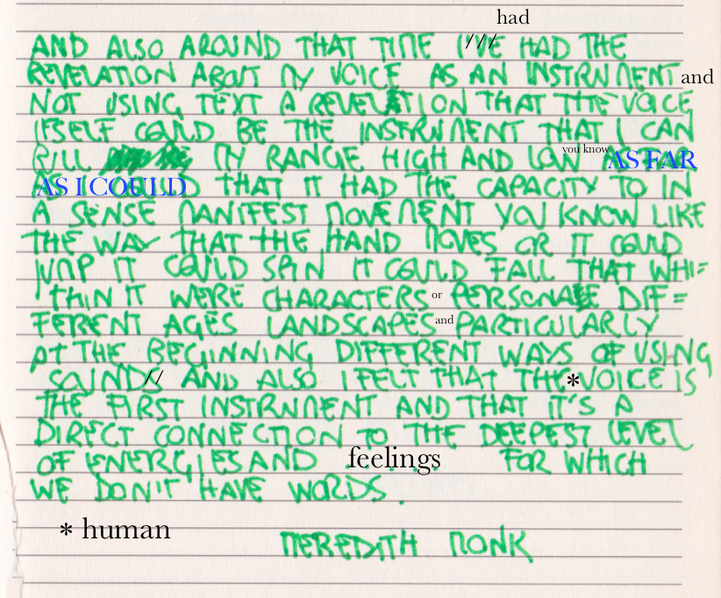 had
AND ALSO AROUND THAT TIME I'VE HAD THE
REVELATION ABOUT MY VOICE AS AN INSTRUMENT and
NOT USING TEXT A REVELATION THAT THE VOICE
ITSELF COULD BE THE INSTRUMENT THAT I CAN
you know
MY RANGE HIGH AND LOW AS FAR
AS I COULD THAT IT HAD THE CAPACITY TO IN
A SENSE MANIFEST MOVEMENT YOU KNOW LIKE
THE WAY THAT THE HAND MOVES OR IT COULD
JUMP IT COULD SPIN IT COULD FALL THAT WHI=
THIN IT WERE CHARACTERS or PERSONAE DIF=
FERENT AGES LANDSCAPES and PARTICULARLY
AT THE BEGINNING DIFFERENT WAYS OF USING
SOUND// AND ALSO I FELT THAT THE * VOICE IS
THE FIRST INSTRUMENT AND THAT IT'S A
DIRECT CONNECTION TO THE DEEPEST LEVEL
OF ENERGIES AND feelings FOR WHICH
WE DON'T HAVE WORDS.
* human
MEREDITH MONK